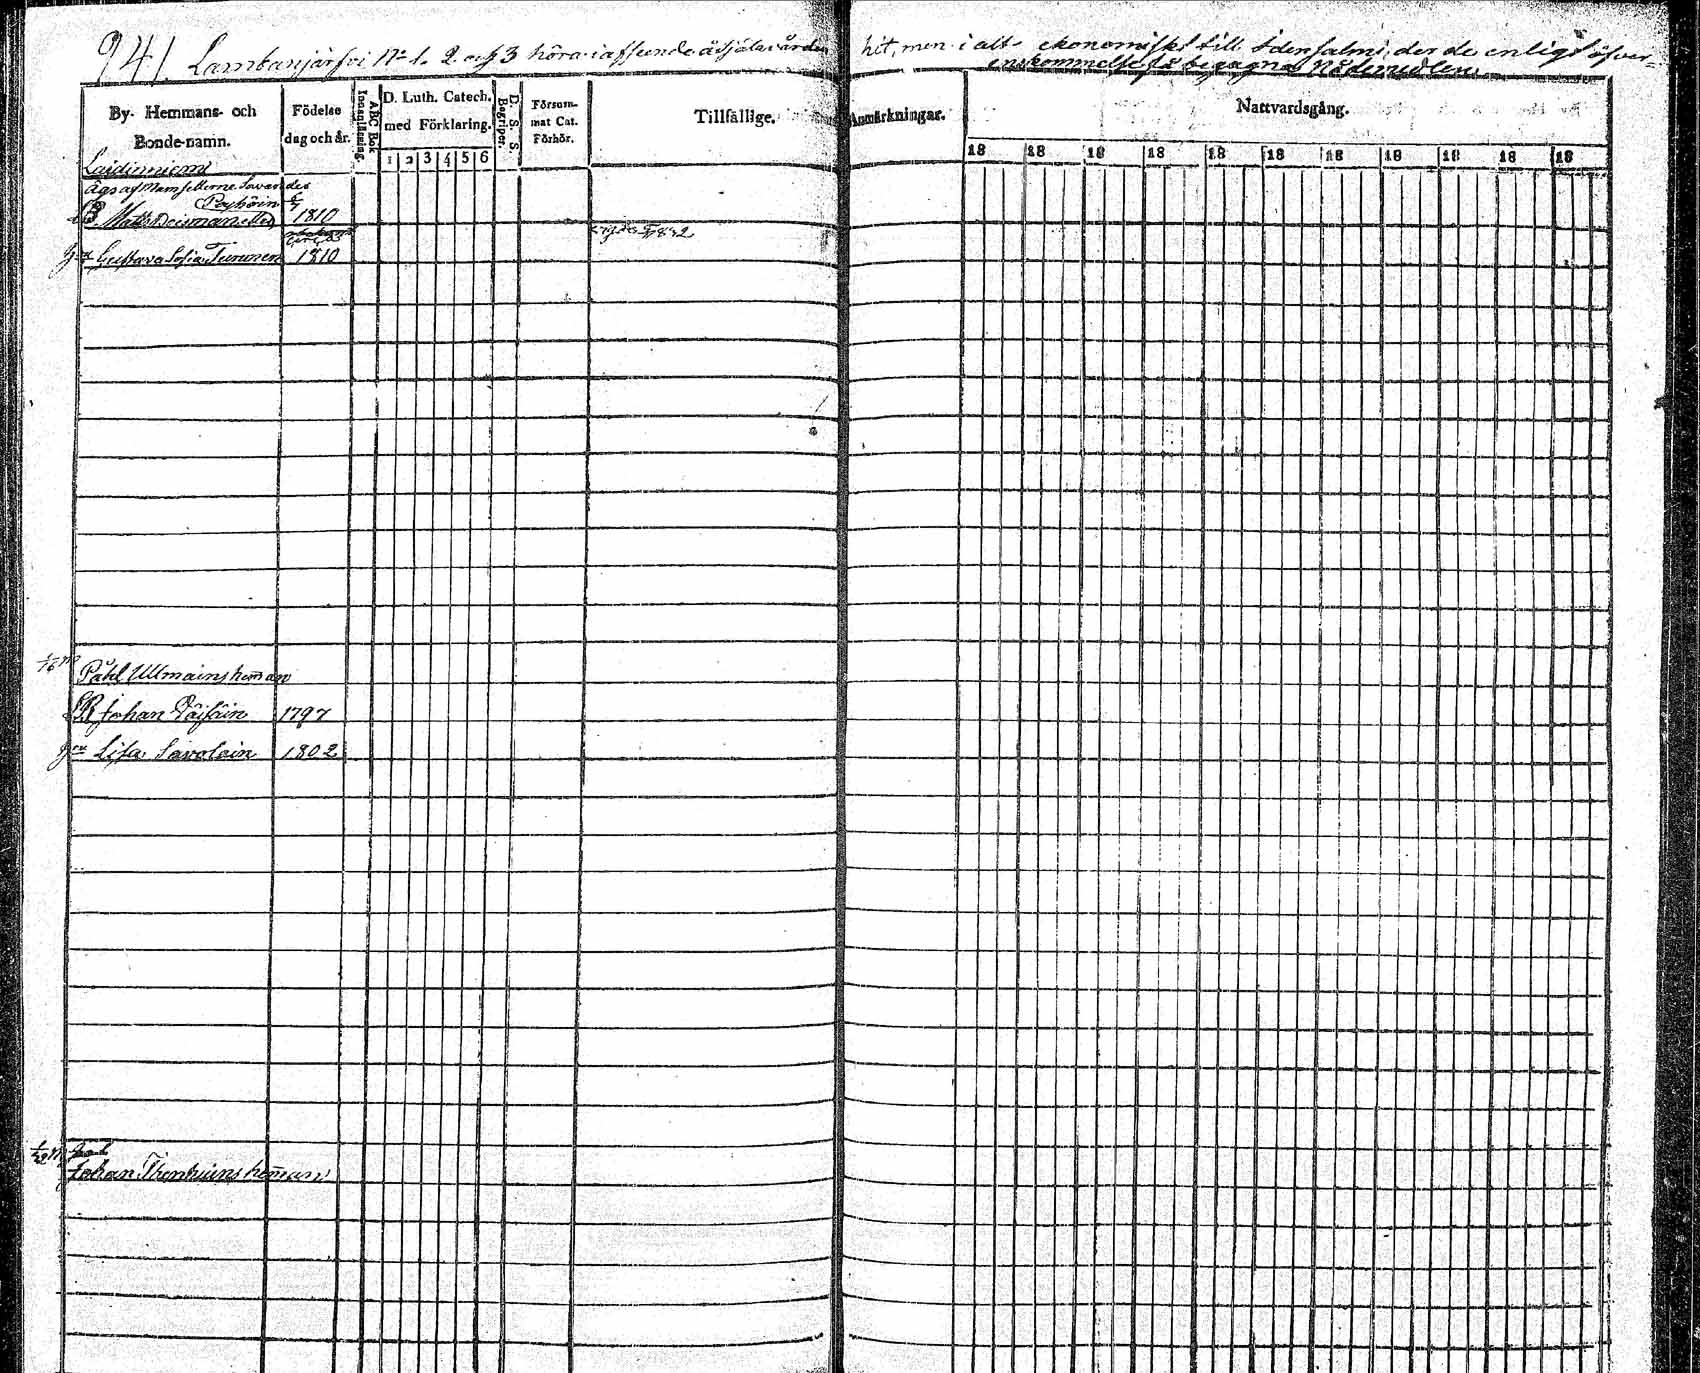 941. Lambanjärfvi No 1. 2 och 3 höra i afseende å själavården hit, men i alt ekonomiskt till Idensalmi, der de enligt öfver=
enskommelse få begagna Nödemedlen
By- Hemmans- och Bonde-namn.
Födelse dag och år.
ABC Bok Innanläsning.
D. Luth. Catech. med Förklaring.
1 2 3 4 5 6
D. S. S. Begriper.
Försummat Cat. Förhör.
Tillfällige.
Anmärkningar.
Nattvardsgång.
18 18 18 18 18 18 18 18 18 18 18
Laidinniemi
Äges af Mamsellerne Savanders
Pöyhöin
B. Matts 1810
Gustava Sofia Turunen 1810
Påhl Ullmains heman
B Johan Väisäin 1797
Lisa Savolain 1802
Johan Thenhuins heman